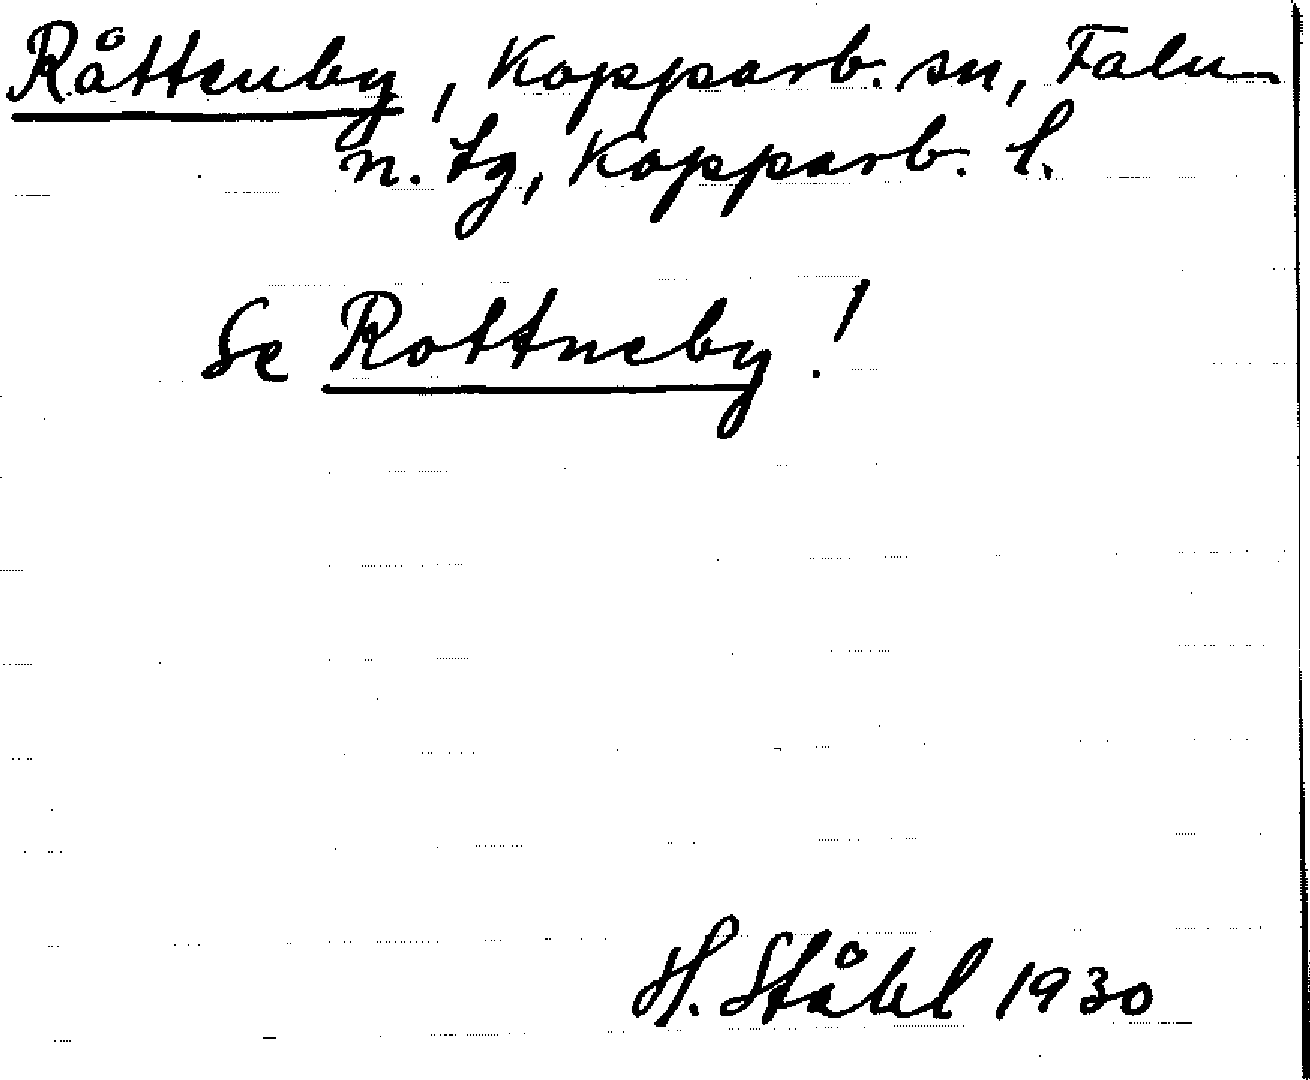 Råttenby, Kopparb. sn, Falu
n. tg, Kopparb. l.
Se Rottneby!
H. Ståhl 1930